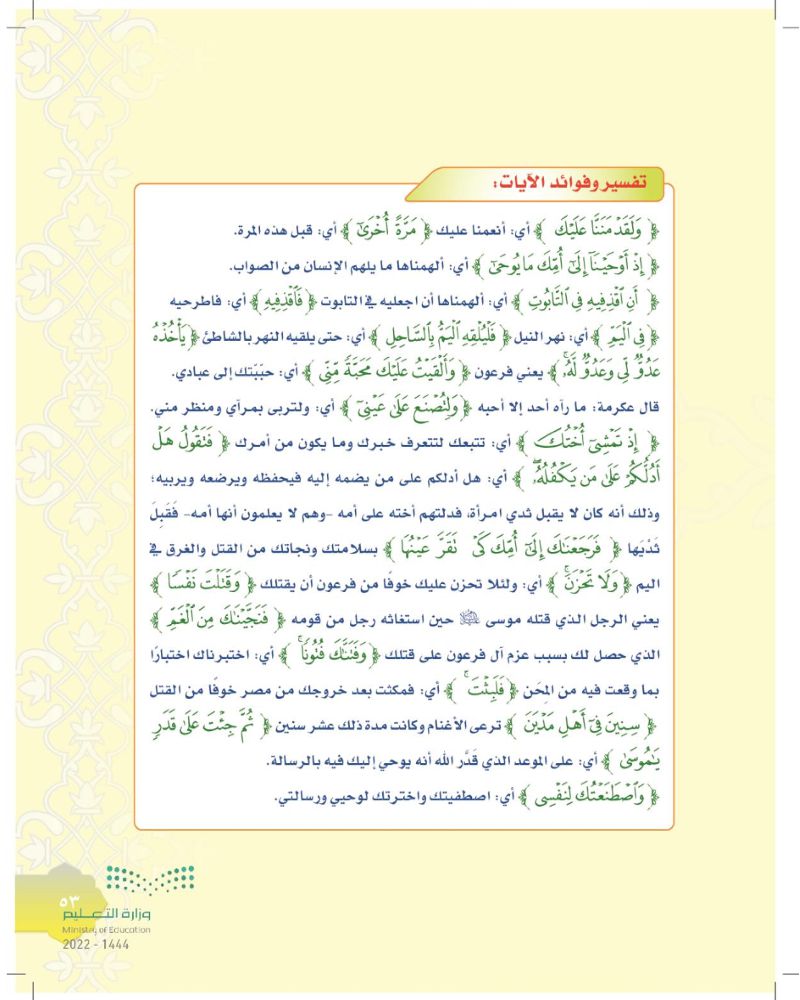 تفسير وفوائد الآيات:
﴿ وَلَقَدْ مَنَنَّا عَلَيْكَ ﴾ أي: أنعمنا عليك ﴿ مَرَّةً أُخْرَىٰٓ ﴾ أي: قبل هذه المرة.
﴿ إِذْ أَوْحَيْنَآ إِلَىٰٓ أُمِّكَ مَا يُوحَىٰٓ ﴾ أي: ألهمناها ما يلهم الإنسان من الصواب.
﴿ أَنِ ٱقْذِفِيهِ فِي ٱلتَّابُوتِ ﴾ أي: ألهمناها أن اجعليه في التابوت ﴿ فَٱقْذِفِيهِ ﴾ أي: فاطرحيه
﴿ فِي ٱلْيَمِّ ﴾ أي: نهر النيل ﴿ فَلْيُلْقِهِ ٱلْيَمُّ بِٱلسَّاحِلِ ﴾ أي: حتى يلقيه النهر بالشاطئ ﴿ يَأْخُذْهُ
عَدُوٌّ لِّي وَعَدُوٌّ لَّهُۥۚ ﴾ يعني فرعون ﴿ وَأَلْقَيْتُ عَلَيْكَ مَحَبَّةً مِّنِّي ﴾ أي: حبّبتك إلى عبادي.
قال عكرمة: ما رآه أحد إلا أحبه ﴿ وَلِتُصْنَعَ عَلَىٰ عَيْنِيٓ ﴾ أي: ولتربى بمرآي ومنظر مني.
﴿ إِذْ تَمْشِيٓ أُخْتُكَ ﴾ أي: تتبعك لتتعرف خبرك وما يكون من أمرك ﴿ فَتَقُولُ هَلْ
أَدُلُّكُمْ عَلَىٰ مَن يَكْفُلُهُۥۖ ﴾ أي: هل أدلكم على من يضمه إليه فيحفظه ويرضعه ويربيه؛
وذلك أنه كان لا يقبل ثدي امرأة، فدلتهم أخته على أمه -وهم لا يعلمون أنها أمه- فَقَبِلَ
ثَدْيَها ﴿ فَرَجَعْنَٰكَ إِلَىٰٓ أُمِّكَ كَيْ تَقَرَّ عَيْنُهَا ﴾ بسلامتك ونجاتك من القتل والغرق في
اليم ﴿ وَلَا تَحْزَنَۚ ﴾ أي: ولئلا تحزن عليك خوفًا من فرعون أن يقتلك ﴿ وَقَتَلْتَ نَفْسًا ﴾
يعني الرجل الذي قتله موسى ﷺ حين استغاثه رجل من قومه ﴿ فَنَجَّيْنَٰكَ مِنَ ٱلْغَمِّ ﴾
الذي حصل لك بسبب عزم آل فرعون على قتلك ﴿ وَفَتَنَّٰكَ فُتُونًاۚ ﴾ أي: اختبرناك اختبارًا
بما وقعت فيه من المِحَن ﴿ فَلَبِثْتَ ﴾ أي: فمكثت بعد خروجك من مصر خوفًا من القتل
﴿ سِنِينَ فِيٓ أَهْلِ مَدْيَنَ ﴾ ترعى الأغنام وكانت مدة ذلك عشر سنين ﴿ ثُمَّ جِئْتَ عَلَىٰ قَدَرٍ
يَٰمُوسَىٰ ﴾ أي: على الموعد الذي قَدَّر الله أنه يوحي إليك فيه بالرسالة.
﴿ وَٱصْطَنَعْتُكَ لِنَفْسِي ﴾ أي: اصطفيتك واخترتك لوحيي ورسالتي.
٥٣
وزارة التعليم
Ministry of Education
2022 - 1444